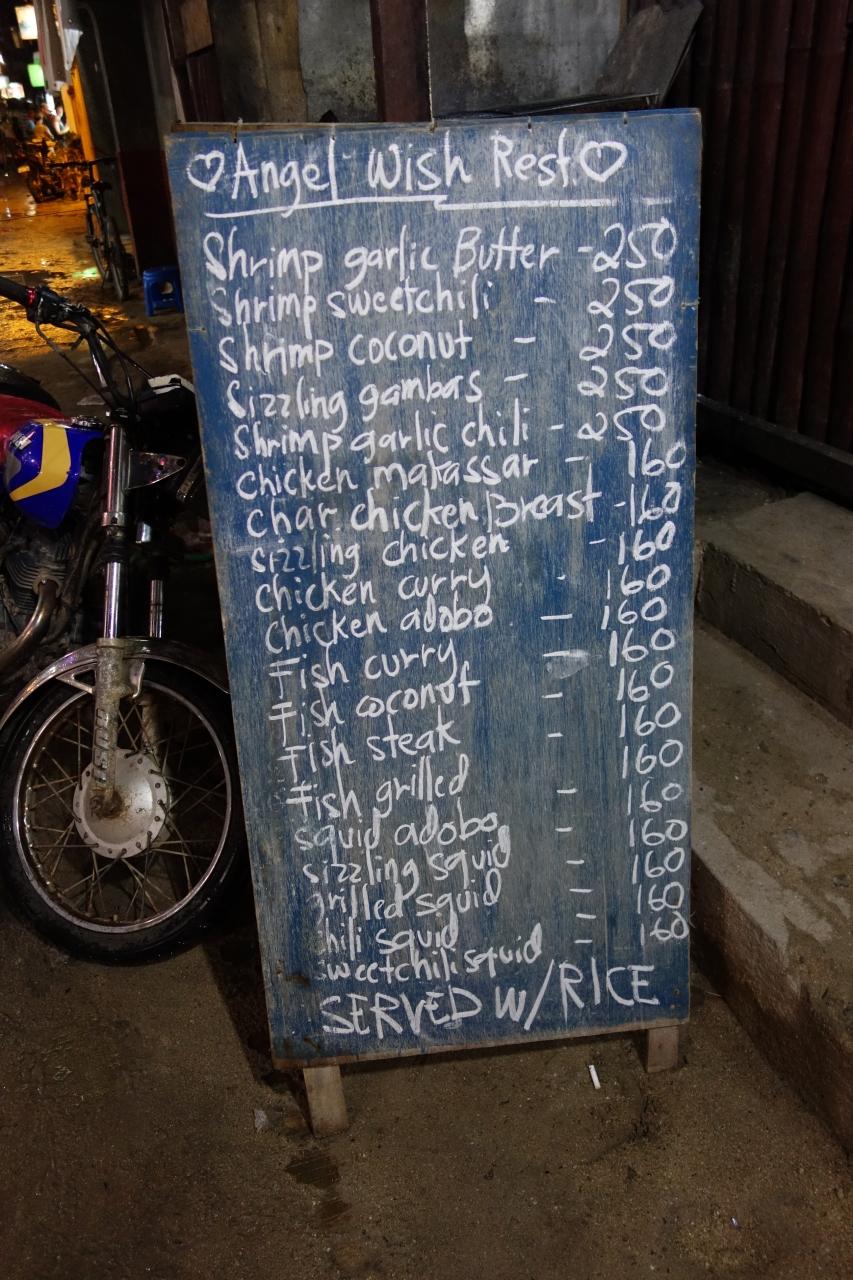 ♡Angel Wish Rest.♡
Shrimp garlic Butter - 250
Shrimp sweetchili - 250
Shrimp coconut - 250
Sizzling gambas - 250
Shrimp garlic chili - 250
chicken makassar - 160
char. chicken Breast - 160
sizzling chicken - 160
chicken curry - 160
chicken adobo - 160
Fish curry - 160
Fish coconut - 160
Fish steak - 160
Fish grilled - 160
squid adobo - 160
sizzling squid - 160
grilled squid - 160
chili squid - 160
sweetchili squid - 160
SERVED W/RICE